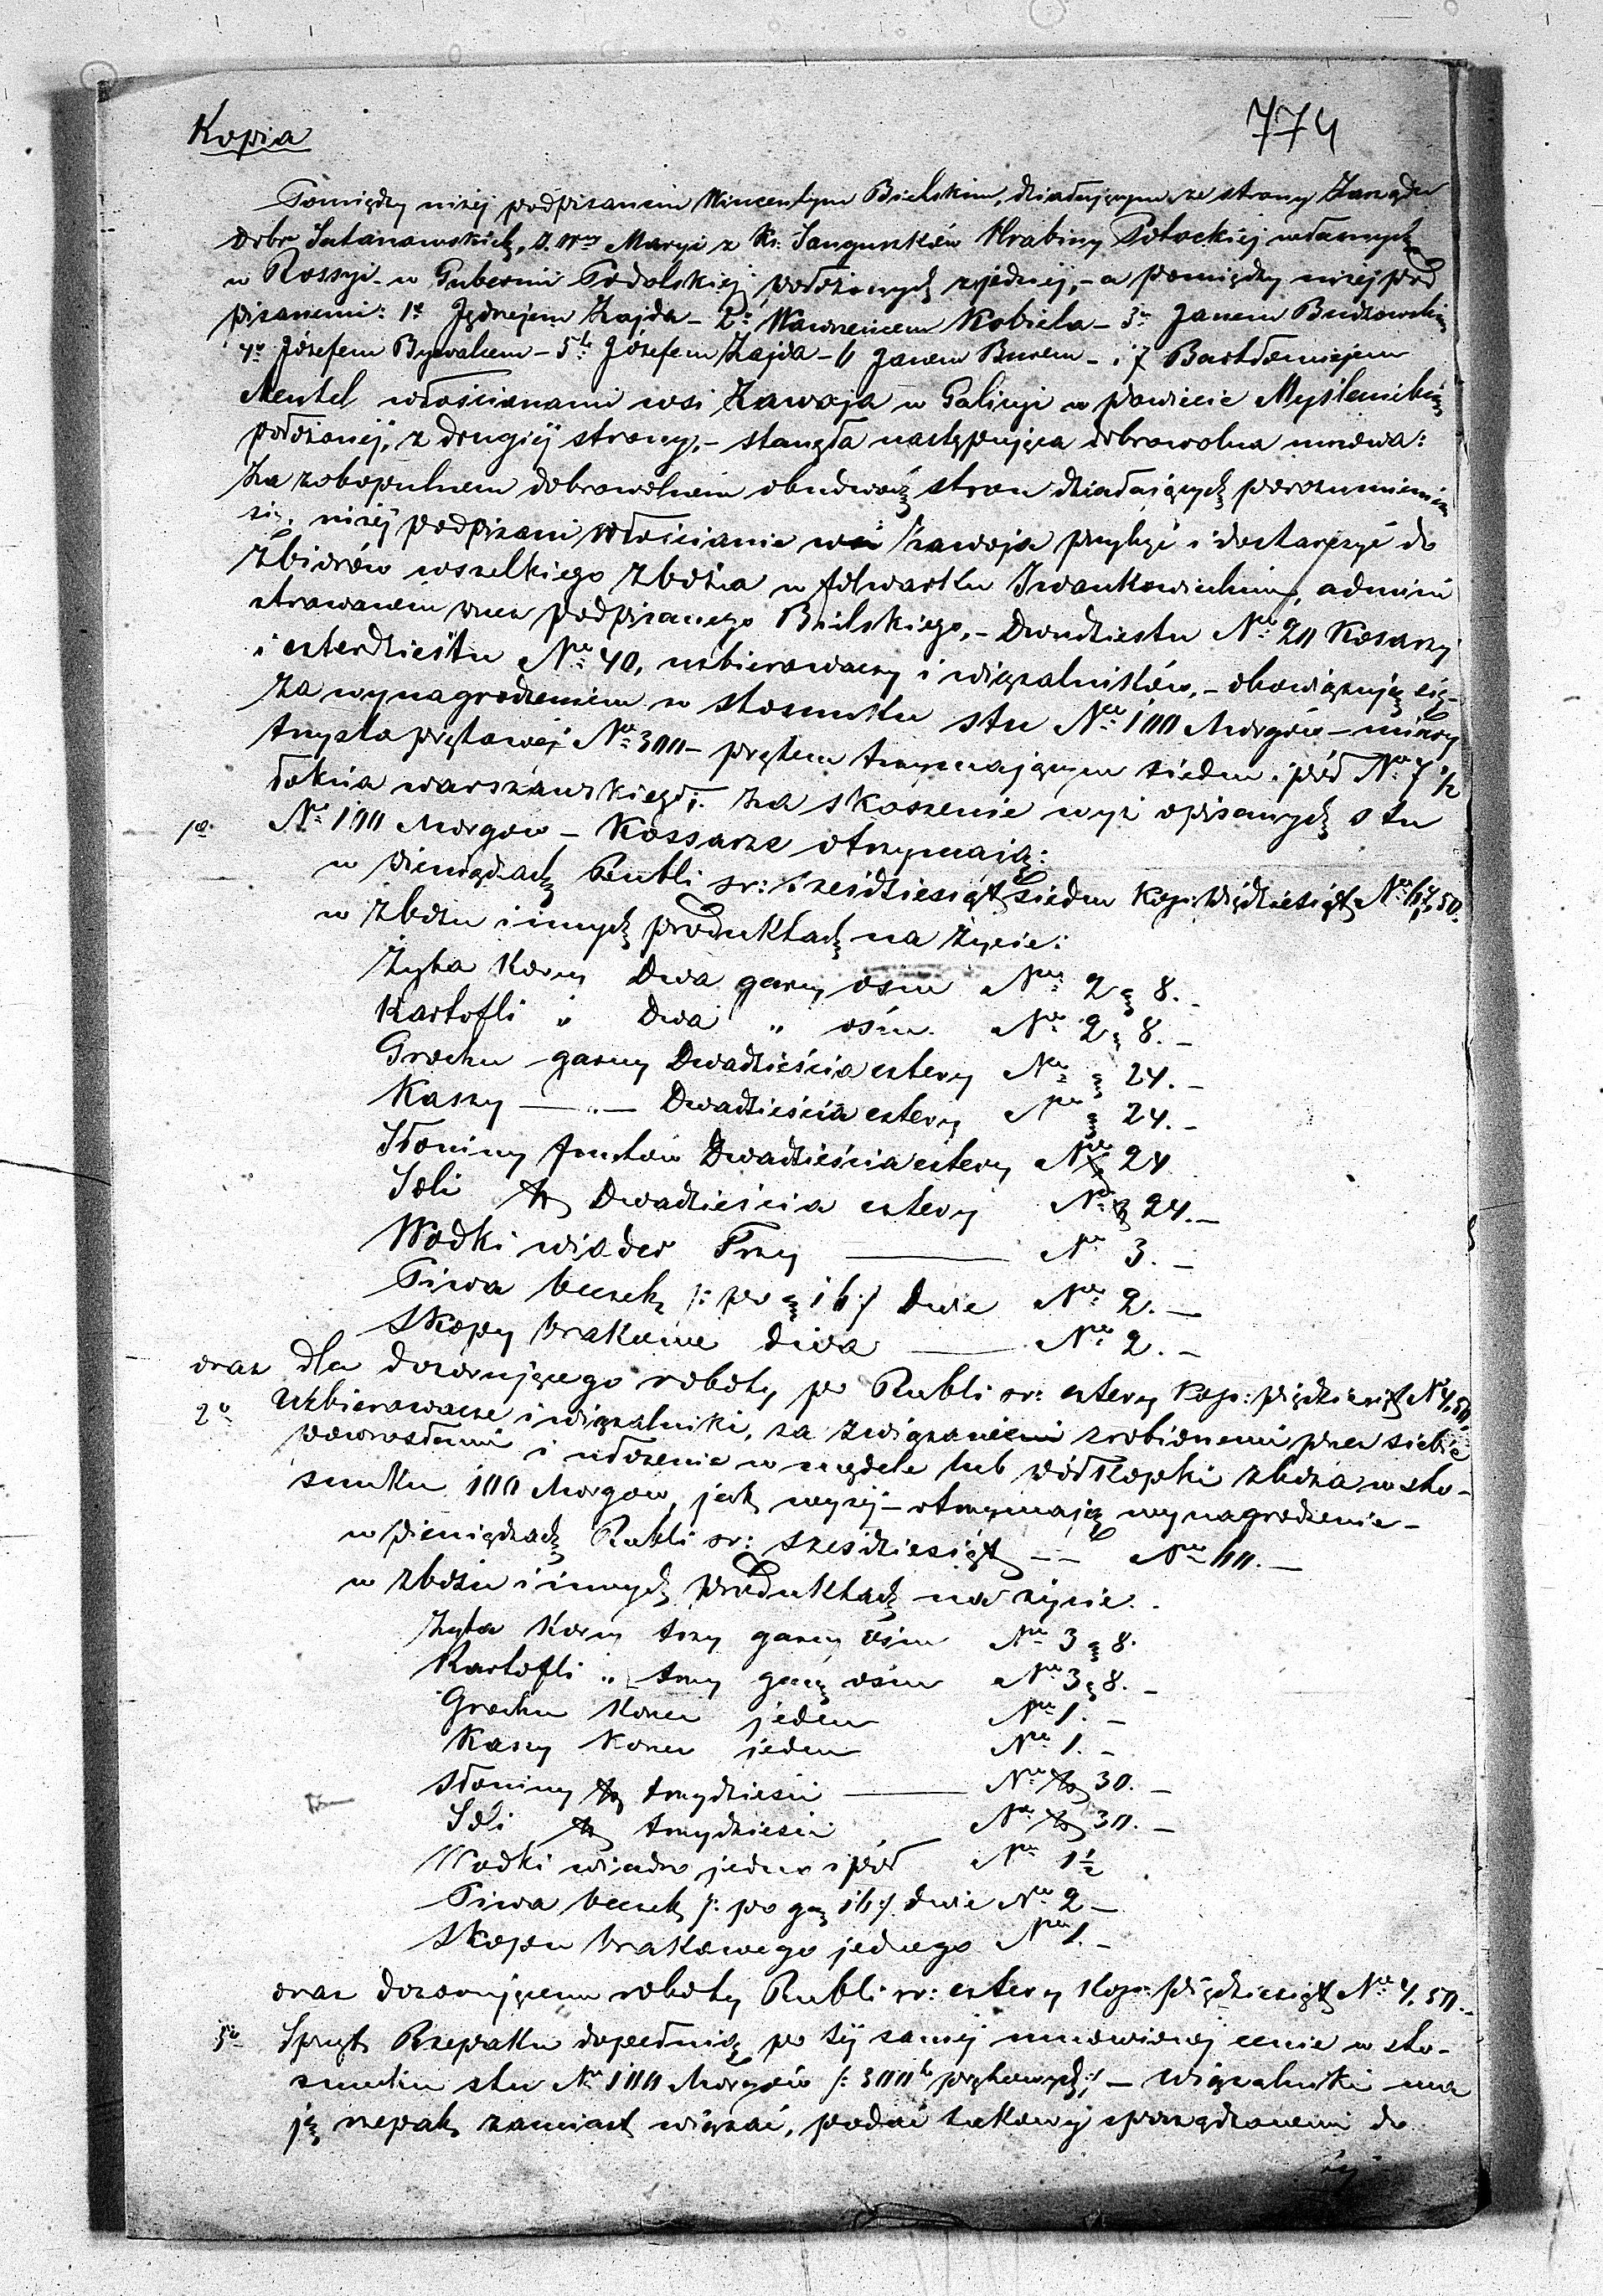 Kopia
774
Pomiędzy niżej podpisanem Wincentym Bielskim, działającym ze strony Zarządu
Dobr Satanowskich, J. W. Maryi z Ks: Sanguszków Hrabiny Potockiej własnych
w Rossyi w Gubernii Podolskiej położonych z jednej, - a pomiędzy niżej pod
pisanemi: 1º Jędrzejem Zajda - 2º Wawrzeńcem Kobiela - 3º Janem Budzowskim
4º Józefem Bywalcem - 5º Józefem Zajda - 6 Janem Burem - i 7 Bartłomiejem
Mentel włościanami wsi Zawoja w Galicyi w powiecie Myślenickim
położonej, z drugiéj strony, - stanęła następująca dobrowolna umowa:
Za zobopulnem dobrowolnem obudwóch stron działających porozumieniem
się, niżéj podpisani włościanie wsi Zawoja przybyć i dostarczyć do
Zbiorów wszelkiego Zboża w folwarku Iwankowieckim, admini
strowanem przez podpisanego Bielskiego, - Dwudziestu Nº 20 Kosarzy
i czterdziestu Nº 40, uzbierowaczy i wiązalników, - obowiązują się -
Za wynagrodzeniem w stosunku stu Nº 100 Morgów - miary
trzysto prętowej Nº 300 - prętem trzymającym siedm i pół Nº 7 1/2
łokcia warszawskiego. Za skoszenie wyż opisanych stu
1º Nº 100 Morgow - Kossarze otrzymają:
w pieniądzach Rubli sr: sześdziesiąt siedm Kop: pięćdziesiąt Nº 67,50.
w Zbożu i innych produktach na życie:
Żyta Korcy Dwa garcy ośm Nº 2 g 8. -
Kartofli " Dwa " ośm. Nº 2 g 8. -
Grochu garcy Dwadzieścia cztery Nº g 24. -
Kaszy — " — Dwadzieścia cztery Nº g 24. -
Słoniny funtów Dwadzieścia cztery Nº ℔ 24
Soli ℔ Dwadzieścia cztery Nº ℔ 24. -
Wodki wiader Trzy — Nº 3. -
Piwa beczek /: po g 16 :/ Dwie Nº 2. -
Skopy brakowne dwa — Nº 2. -
oraz dla dozorującego roboty po Rubli sr: cztery Kop: pięćdziesiąt Nº 4,50.
2º Uzbierowacze i wiązalniki, za związaniem zrobionemi przez siebie
powrosłami i ułożenie w mędele lub półkopki zboża w sto-
sunku 100 Morgow, jak wyżej - otrzymają wynagrodzenie -
w pieniądzach Rubli sr: sześdziesiąt -- Nº 60. -
w zbożu i innych produktach na życie.
Żyta Korcy trzy garcy ośm Nº 3 g 8.
Kartofli " trzy garcy ośm Nº 3 g 8. -
Grochu Korzec jeden Nº 1. -
Kaszy Korzec jeden Nº 1. -
Słoniny ℔ trzydzieści — Nº ℔ 30. -
Soli ℔ trzydzieści Nº ℔ 30. -
Wodki wiadro jedno i pół Nº 1½
Piwa beczek /: po gar 16 :/ dwie Nº 2 -
Skopu brakowego jednego Nº 1. -
oraz dozorującemu roboty Rubli sr: cztery Kop: pięćdziesiąt Nº 4.50. -
3º Sprzęt Rzepaku dopełnią po tej samej umowionej cenie w sto-
sunku stu Nº 100 Morgów /: 300 prętowych :/ - wiązalniki ma
ją rzepak zamiast wiązać, podać takowy sporządzonemi do